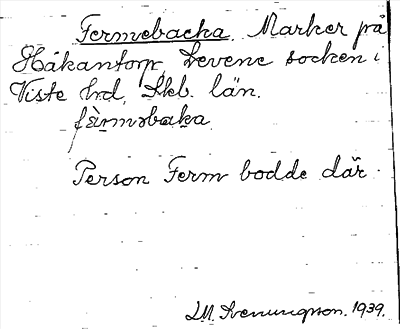 Fermebacka. Marker på
Håkantorp, Levene socken i
Viste hd, Skb. län.
fèrməbaka
Person Ferm bodde där.
1939.